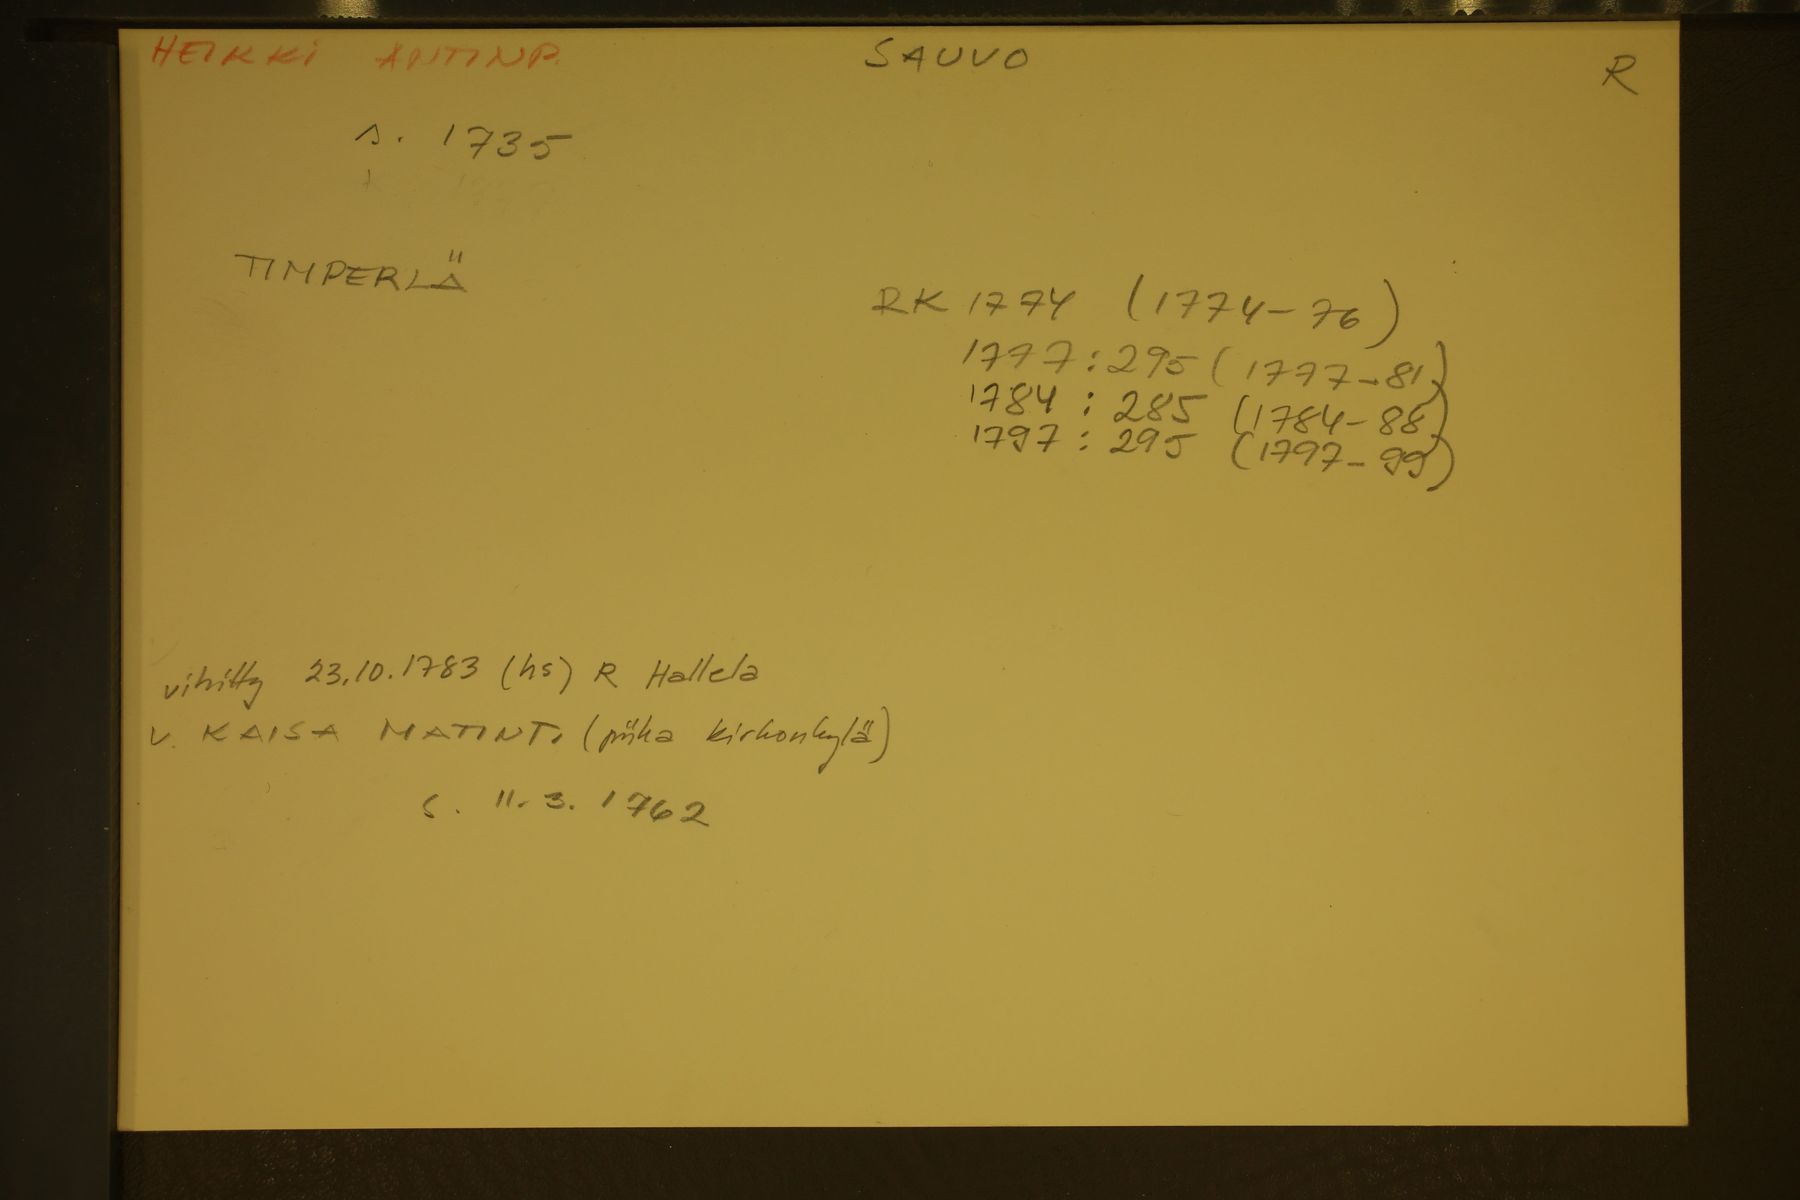 HEIKKI ANTINP. SAUVO R
s. 1735
TIMPERLÄ
RK 1774 (1774-76)
1777:295 (1777-81)
1784:285 (1784-88)
1797:295 (1797-99)
vihitty 23.10.1783 (hs) R Hallela
v. KAISA MATINT. (piika kirkonkylä)
s. 11.3.1762